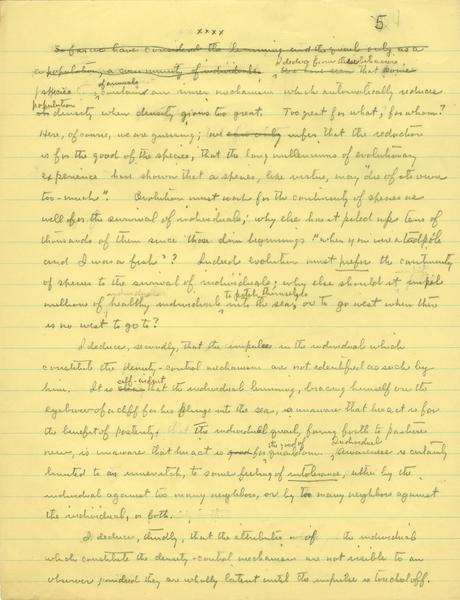 5
xxxx
So far we have considered the lemming and the quail only as a
population, a community of individuals. I deduce from their behavior, We have seen that some
species of animals contains an inner mechanism which automatically reduces
population density when density grows too great. Too great for what, for whom?
Here, of course, we are guessing; we can only infer that the reduction
is for the good of the species, that the long millenniums of evolutionary
experience have shown that a species, like virtue, may "die of its own
too-much". Evolution must work for the continuity of species as
well as for the survival of individuals; why else has it piled up tens of
thousands of them since those dim beginnings "when you were a tadpole
and I was a fish"? Indeed evolution must prefer the continuity
of species to the survival of individuals; why else should it impel
millions of healthy individuals to pitch themselves into the sea, or to go west when there
is no west to go to?
I deduce, secondly, that the impulses in the individual which
constitute the density-control mechanism are not identified as such by
him. It is self-evident that the individual lemming, bracing himself on the
eyebrow of a cliff for his plunge into the sea, is unaware that his act is for
the benefit of posterity; the individual quail, faring forth to pastures
new, is unaware that his act is for the good of quaildom. Individual awareness is certainly
limited to an inner itch, to some feeling of intolerance, either by the
individual against too many neighbors, or by too many neighbors against
the individual, or both.
I deduce, thirdly, that the attributes of the individual
which constitute the density-control mechanism are not visible to an
observer; indeed they are wholly latent until the impulse is touched off.